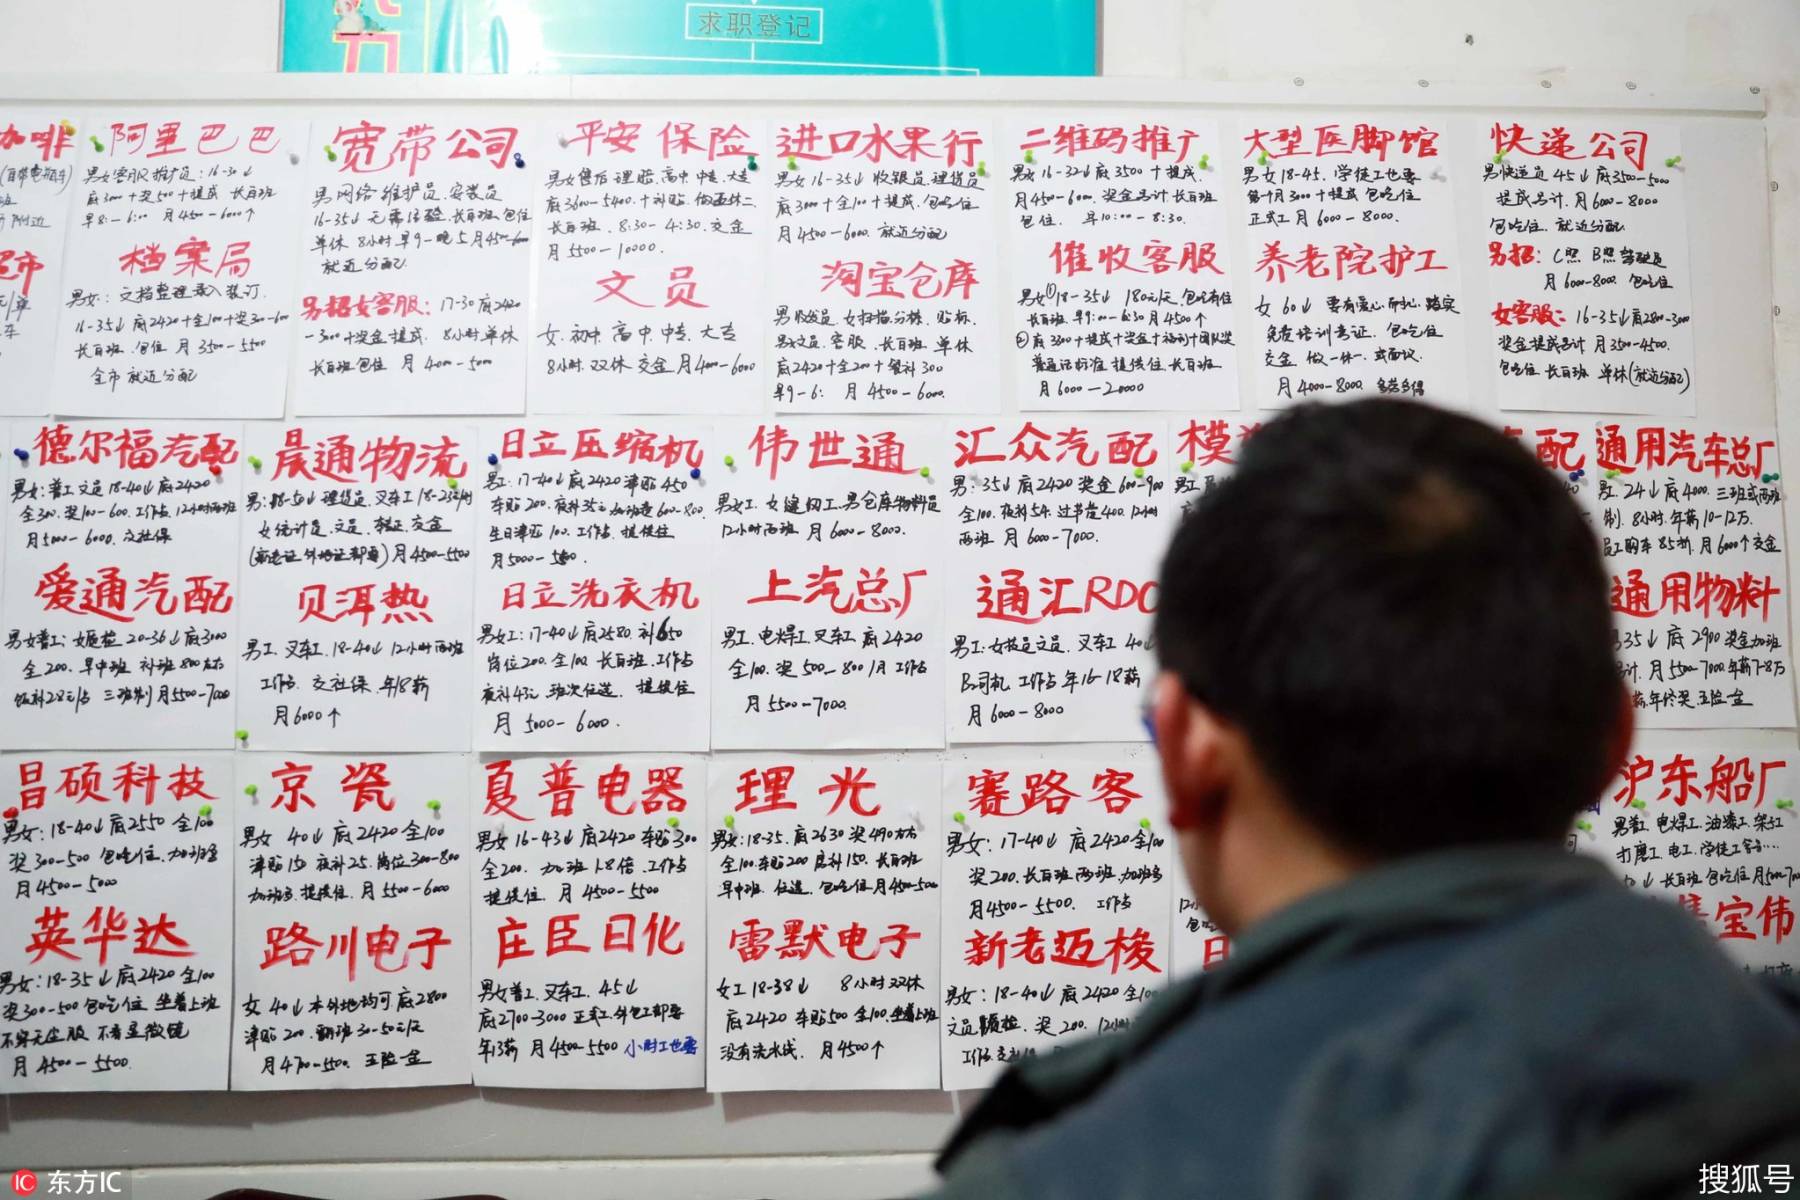 求职登记
咖啡
阿里巴巴
男女客服维护员:16-30↓
底3000+奖500+提成 长白班
早8:-6:00 月4500-6000个
档案局
男女:文档整理录入装订.
16-35↓底2420+全100+奖300-600
长白班.包住 月3500-5500
全市就近分配
宽带公司
男网络维护员、安装员
16-35↓无需经验.长白班.包住
单休 8小时早9-晚5月4500-6000
就近分配
另招女客服:17-30底2420
-3000+奖金提成.8小时单休
长白班包住 月4000-5000
平安保险
男女售后理赔.高中.中专.大专
底3600-5400.+补贴.做五休二
长白班.8:30-4:30.交金
月5500-10000.
文员
女.初中.高中.中专.大专
8小时.双休 交金 月4000-6000
进口水果行
男女16-35↓收银员.理货员
底3000+全100+提成.包吃住
月4500-6000.就近分配
淘宝仓库
男收发员.女扫描.分拣.贴标.
男女文员.客服.长白班 单休
底2420+全200+餐补300
早9-6: 月4500-6000.
二维码推广
男女16-32↓底3500+提成.
月4500-6000.奖金另计.长白班
包住. 早10:00-8:30.
催收客服
男女①18-35↓ 180元/天.包吃有住
长白班.早9:00-6:30月4500个
②底3300+提成+奖金+福利+团队奖
普通话标准 提供住.长白班
月6000-20000
大型医脚馆
男女18-45.学徒工也要
第一个月3000+提成 包吃住
正式工 月6000-8000.
养老院护工
女60↓ 要有爱心.耐心.踏实
免费培训考证. 包吃住
交金 做一休一.或面议
月4000-8000. 多劳多得
快递公司
男快递员 45↓底3500-5000
提成另计.月6000-8000
包吃住.就近分配
另招: C照 B照 驾驶员
月6000-8000. 包吃住
女客服: 16-35↓底2800-3000
奖金提成另计 月3500-4500.
包吃住 长白班 单休(就近分配)
德尔福汽配
男女:普工文员18-40↓底2420
全300.奖100-600.工作与.12小时两班
月5000-6000.交社保
爱通汽配
男女普工:女质检20-36↓底3000
全200.早中班 补班800左右
饭补28元/与 三班制 月5500-7000
晨通物流
女统计员.文员. 交金
月4500-5500
贝洱热
男工.叉车工.18-40↓12小时两班
工作与.交社保.年18薪
月6000个
日立压缩机
男工:17-40↓底2420津贴450
车贴200.
生日津贴100.工作与.提供住
日立洗衣机
男女工:17-40↓底2580.补650
岗位200.全100.长白班.工作与
夜补43元 班次任选. 提供住
月5000-6000.
伟世通
12小时两班. 月6000-8000.
上汽总厂
男工.电焊工.叉车工 底2420
全100.奖500-800/月 工作与
月5500-7000.
汇众汽配
男:35↓底2420 奖金600-900
全100.夜补54.过节费400.12小时
两班 月6000-7000.
通汇RDC
男工:女校员文员.叉车工 40↓
B2司机 工作与 年16-18薪
月6000-8000
汽配
通用汽车总厂
男工.24↓底4000.三班或两班
制.8小时.年薪10-12万.
员工购车85折.月6000个交金
通用物料
男35↓底2900奖金加班
另计.月5500-7000.年薪7-8万
年终奖 五险一金
昌硕科技
男女:18-40↓底2550 全100
奖300-500 包吃住.加班多
月4500-5000
英华达
男女:18-35↓底2420全100
奖300-500包吃住 坐着上班
不穿无尘服 不看显微镜
月4500-5500.
京瓷
男女 40↓底2420全100
津贴150 夜补25.岗位300-800
加班多 提供住.月5500-6000
路川电子
女40↓本外地均可底2800
津贴200.翻班30-50元/天
月4700-5500. 五险一金
夏普电器
男女16-43↓底2420车贴300
全200. 加班1.8倍.工作与
提供住. 月4500-5500
庄臣日化
男女普工.叉车工.45↓
底2700-3000正式工.外包工都要
年13薪 月4500-5500 小时工也要
理光
男女:18-35.底2630奖490左右
全100.车贴200.房补150.长白班
早中班.任选.包吃住月4500-5000
雷默电子
女工18-38↓ 8小时双休
底2420车贴500全100.坐着上班
没有流水线. 月4500个
赛路客
男女:17-40↓底2420全100
奖200.长白班.两班.加班多
月4500-5500. 工作与
新老迈梭
男女:18-40↓底2420全100
文员 质检.奖200.12小时
沪东船厂
男普工.电焊工.油漆工.架子工
打磨工.电工.学徒工
长白班包吃住月5000-
宝伟
东方IC
搜狐号